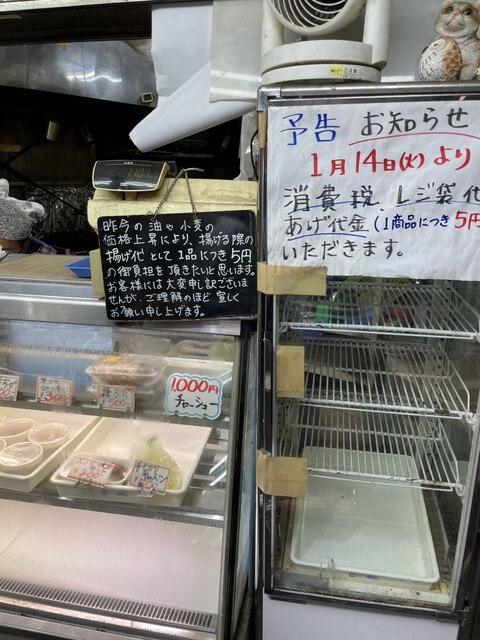 予告 お知らせ
1月14日(火)より
消費税、レジ袋代
あげ代金(1商品につき5円
いただきます。
昨今の油や小麦の
価格上昇により、揚げる際の
揚げ代として1品につき5円
の御負担を頂きたいと思います。
お客様には大変申し訳ございま
せんが、ご理解のほど宜しく
お願い申し上げます。
1,000円
チャーシュー